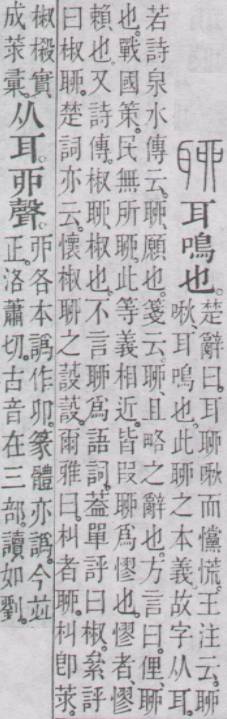 聊 耳鳴也。楚辭曰。耳聊啾而戃慌。王注云。聊
啾、耳鳴也。此聊之本義。故字从耳。
若詩泉水傳云。聊、願也。箋云。聊、且略之辭也。方言曰。俚、聊
也。戰國策。民無所聊。此等義相近。皆叚聊爲憀也。憀者、憀
賴也。又詩傳。椒聊、椒也。不言聊爲語詞。葢單評曰椒。絫評
曰椒聊。楚詞亦云。懷椒聊之蔎蔎。爾雅曰。朻者聊。朻卽莍。
椒樧實
成莍彙。从耳。丣聲。丣各本譌作卯。篆體亦譌。今並
正。洛蕭切。古音在三部。讀如劉。